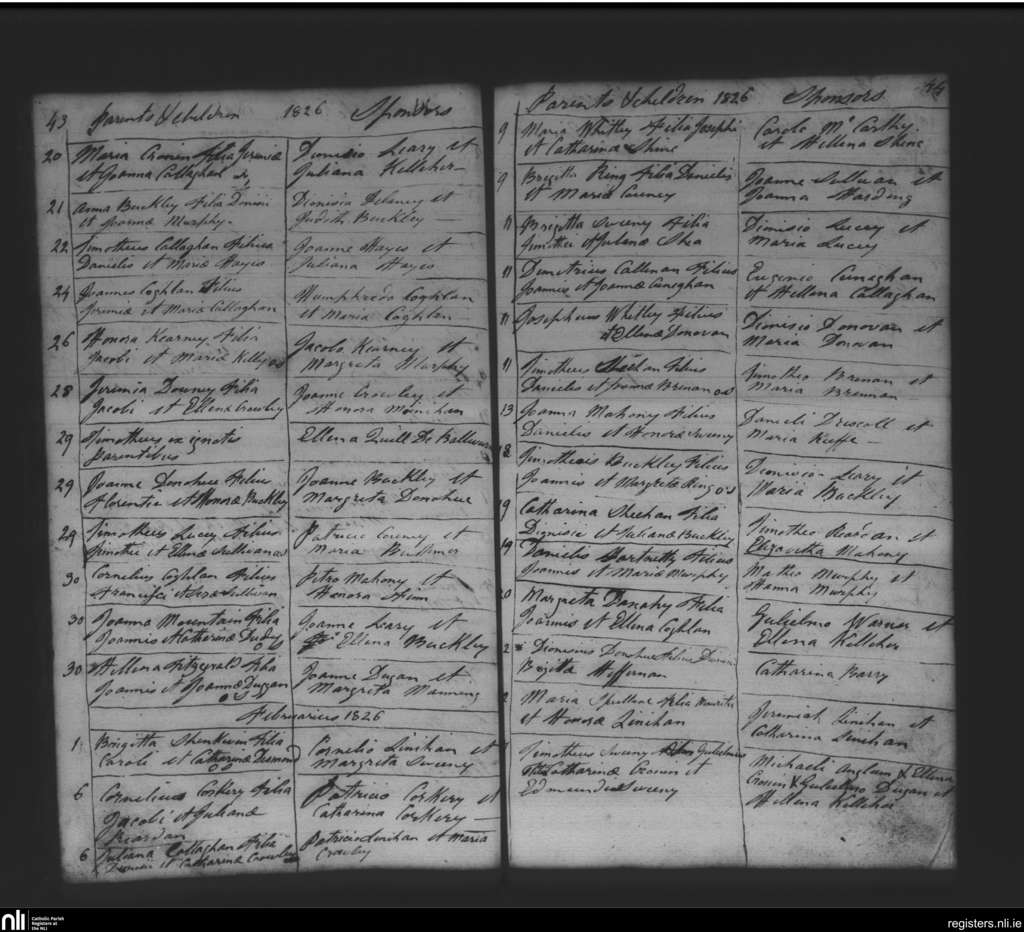 43 Parents & children 1826 Sponsors
20 Maria Cronin filia Jeremiæ
et Joanna Callaghan
Dionisio Leary et
Juliana Kelleher
21 Anna Buckley filia Dionisii
et Joannæ Murphy
Dionisio Delaney et
Judith Buckley
22 Timotheus Callaghan filius
Danielis et Mariæ Hayes
Joanne Hayes et
Juliana Hayes
24 Joannes Coghlan filius
Jeremiæ et Maria Callaghan
Humphredo Coghlan
et Maria Coghlan
26 Honora Kearney filia
Jacobi et Mariæ Kelly
Jacobo Kearney et
Margreta Murphy
28 Jeremia Downey filia
Jacobi et Ellenæ Crowley
Joanne Crowley et
Honora Moinihan
29 Timotheus ex ignotis
parentibus
Ellena Quill De
29 Joanne Donohue filius
Florentii et Honoræ Buckley
Joanne Buckley et
Margreta Donohue
29 Timotheus Lucey filius
Timothei et Ellenæ Sullivan
Patricio Cowney et
Maria
30 Cornelius Coghlan filius
Francisci et Sullivan
Petro Mahony et
Honora
30 Joanna Mountain filia
Joannis et Catherinæ
Joanne Leary et
Ellena Buckley
30 Hellena Fitzgerald filia
Joannis et Joannæ Duggan
Joanne Dugan et
Margreta Manning
Februarius 1826
1 Brigitta filia
Caroli et Catharinæ Desmond
Cornelio Linihan et
Margreta Sweeny
6 Cornelius Corkery filia
Jacobi et Julianæ
Reardan
Patricio Corkery et
Catharina Corkery
6 Juliana Callaghan filia
et Catharinæ Crowley
Patricio Linihan et Maria
Crowley
Parents & children 1826 Sponsors 44
9 Maria Whitley filia Josephi
et Catharina Shine
Carolo Mc Carthy
et Hellena Shine
9 Brigitta Ring filia Danielis
et Mariæ Cowney
Joanne Sullivan et
Joanna Harding
11 Brigitta Sweeny filia
Timothei et Julianæ Shea
Dionisio Lucey et
Maria Lucey
11 Demetrius Callinan filius
Joannis et Joannæ Cunaghan
Eugenio Cunaghan
et Hellena Callaghan
11 Josephus Whitley filius
et Ellenæ Donovan
Dionisio Donovan et
Maria Donovan
11 Timotheus Sheehan filius
Danielis et Joannæ Brenan
Timotheo Brenan et
Maria Brennan
13 Joanna Mahony filius
Danielis et Honoræ Sweeny
Danieli Driscoll et
Maria Keeffe
18 Timotheus Buckley filius
Joannis et Margreta Ring
Dionisio Leary et
Maria Buckley
19 Catharina Sheehan filia
Dionisii et Julianæ Buckley
Timotheo et
Elizabetha Mahony
19 Danielis filius
Joannis et Mariæ Murphy
Matheo Murphy et
Hanna Murphy
20 Margreta Danahy filia
Joannis et Ellena Coghlan
Gulielmo Warner et
Ellena Kelleher
2 Dionisius Donohue filius
Brigitta Heffernan
Catharina Barry
2 Maria Spillane filia Mauritii
et Honoræ Linihan
Jeremiah Linihan et
Catharina Linihan
Timotheus Sweeny Gulielmus
Catharinæ Cronin et
Edmundi Sweeny
Michaeli Anglim & Ellena
Cronin & Gulielmo Dugan et
Hellena Kelleher
nli Catholic Parish
Registers at
the NLI
registers.nli.ie